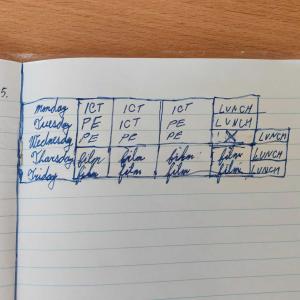 5.
Monday ICT ICT ICT LUNCH
Tuesday PE ICT PE LUNCH
Wednesday PE PE PE LUNCH
Thursday film film film film LUNCH
Friday film film film film LUNCH